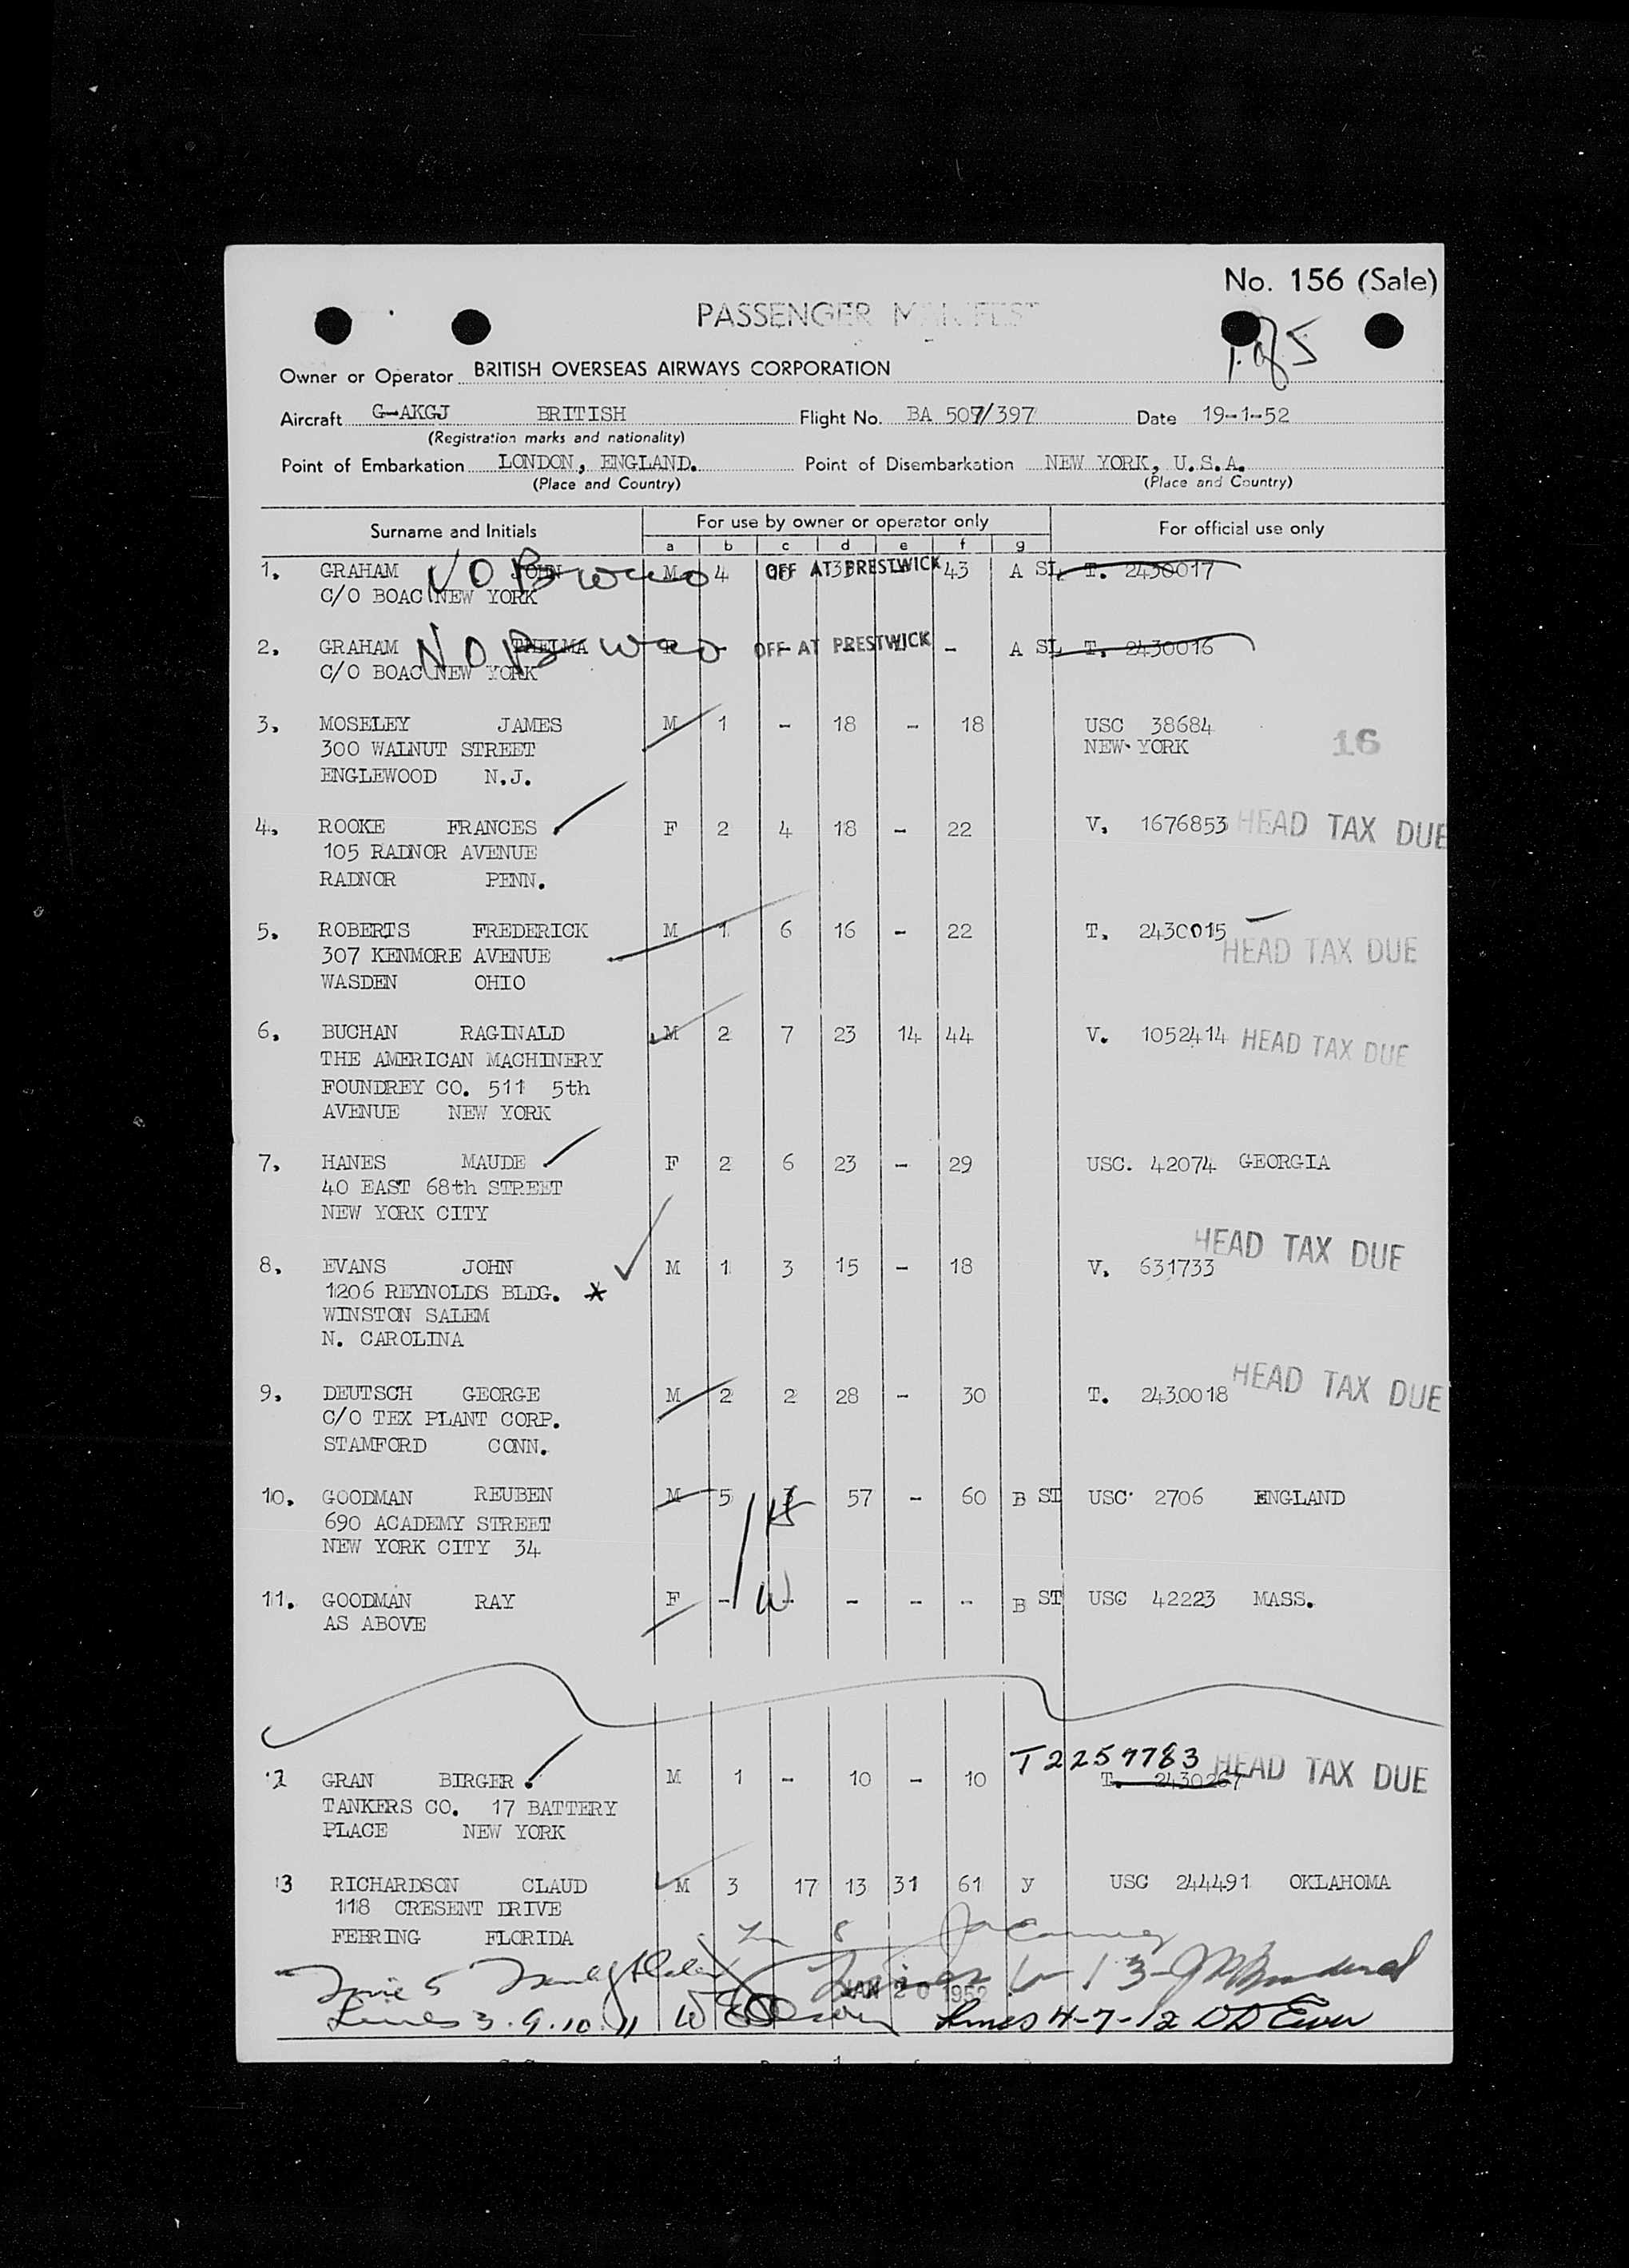 No. 156 (Sale)
PASSENGER MANIFEST
1 of 5
Owner or Operator BRITISH OVERSEAS AIRWAYS CORPORATION
Aircraft G-AKGJ BRITISH Flight No. BA 507/397 Date 19-1-52
(Registration marks and nationality)
Point of Embarkation LONDON, ENGLAND. Point of Disembarkation NEW YORK, U.S.A.
(Place and Country) (Place and Country)
Surname and Initials For use by owner or operator only For official use only
a b c d e f g
1. GRAHAM JOHN M 4 OFF AT PRESTWICK 43 A SL T. 2430017
C/O BOAC NEW YORK
2. GRAHAM THELMA OFF AT PRESTWICK - A SL T. 2430016
C/O BOAC NEW YORK
3. MOSELEY JAMES M 1 - 18 - 18 USC 38684
300 WALNUT STREET NEW YORK 16
ENGLEWOOD N.J.
4. ROOKE FRANCES F 2 4 18 - 22 V. 1676853 HEAD TAX DUE
105 RADNOR AVENUE
RADNOR PENN.
5. ROBERTS FREDERICK M 1 6 16 - 22 T. 2430015
307 KENMORE AVENUE HEAD TAX DUE
WASDEN OHIO
6. BUCHAN RAGINALD M 2 7 23 14 44 V. 1052414 HEAD TAX DUE
THE AMERICAN MACHINERY
FOUNDREY CO. 511 5th
AVENUE NEW YORK
7. HANES MAUDE F 2 6 23 - 29 USC. 42074 GEORGIA
40 EAST 68th STREET
NEW YORK CITY
8. EVANS JOHN M 1 3 15 - 18 V. 631733 HEAD TAX DUE
1206 REYNOLDS BLDG. *
WINSTON SALEM
N. CAROLINA
9. DEUTSCH GEORGE M 2 2 28 - 30 T. 2430018 HEAD TAX DUE
C/O TEX PLANT CORP.
STAMFORD CONN.
10. GOODMAN REUBEN M 5 3 57 - 60 B ST USC 2706 ENGLAND
690 ACADEMY STREET H
NEW YORK CITY 34
11. GOODMAN RAY F - W - - - - B ST USC 42223 MASS.
AS ABOVE
T2259783
12 GRAN BIRGER M 1 - 10 - 10 T. 2430267 HEAD TAX DUE
TANKERS CO. 17 BATTERY
PLACE NEW YORK
13 RICHARDSON CLAUD M 3 17 13 31 61 y USC 244491 OKLAHOMA
118 CRESENT DRIVE
FEBRING FLORIDA
JAN 20 1952
Lines 3.9.10.11 Lines 4-7-12